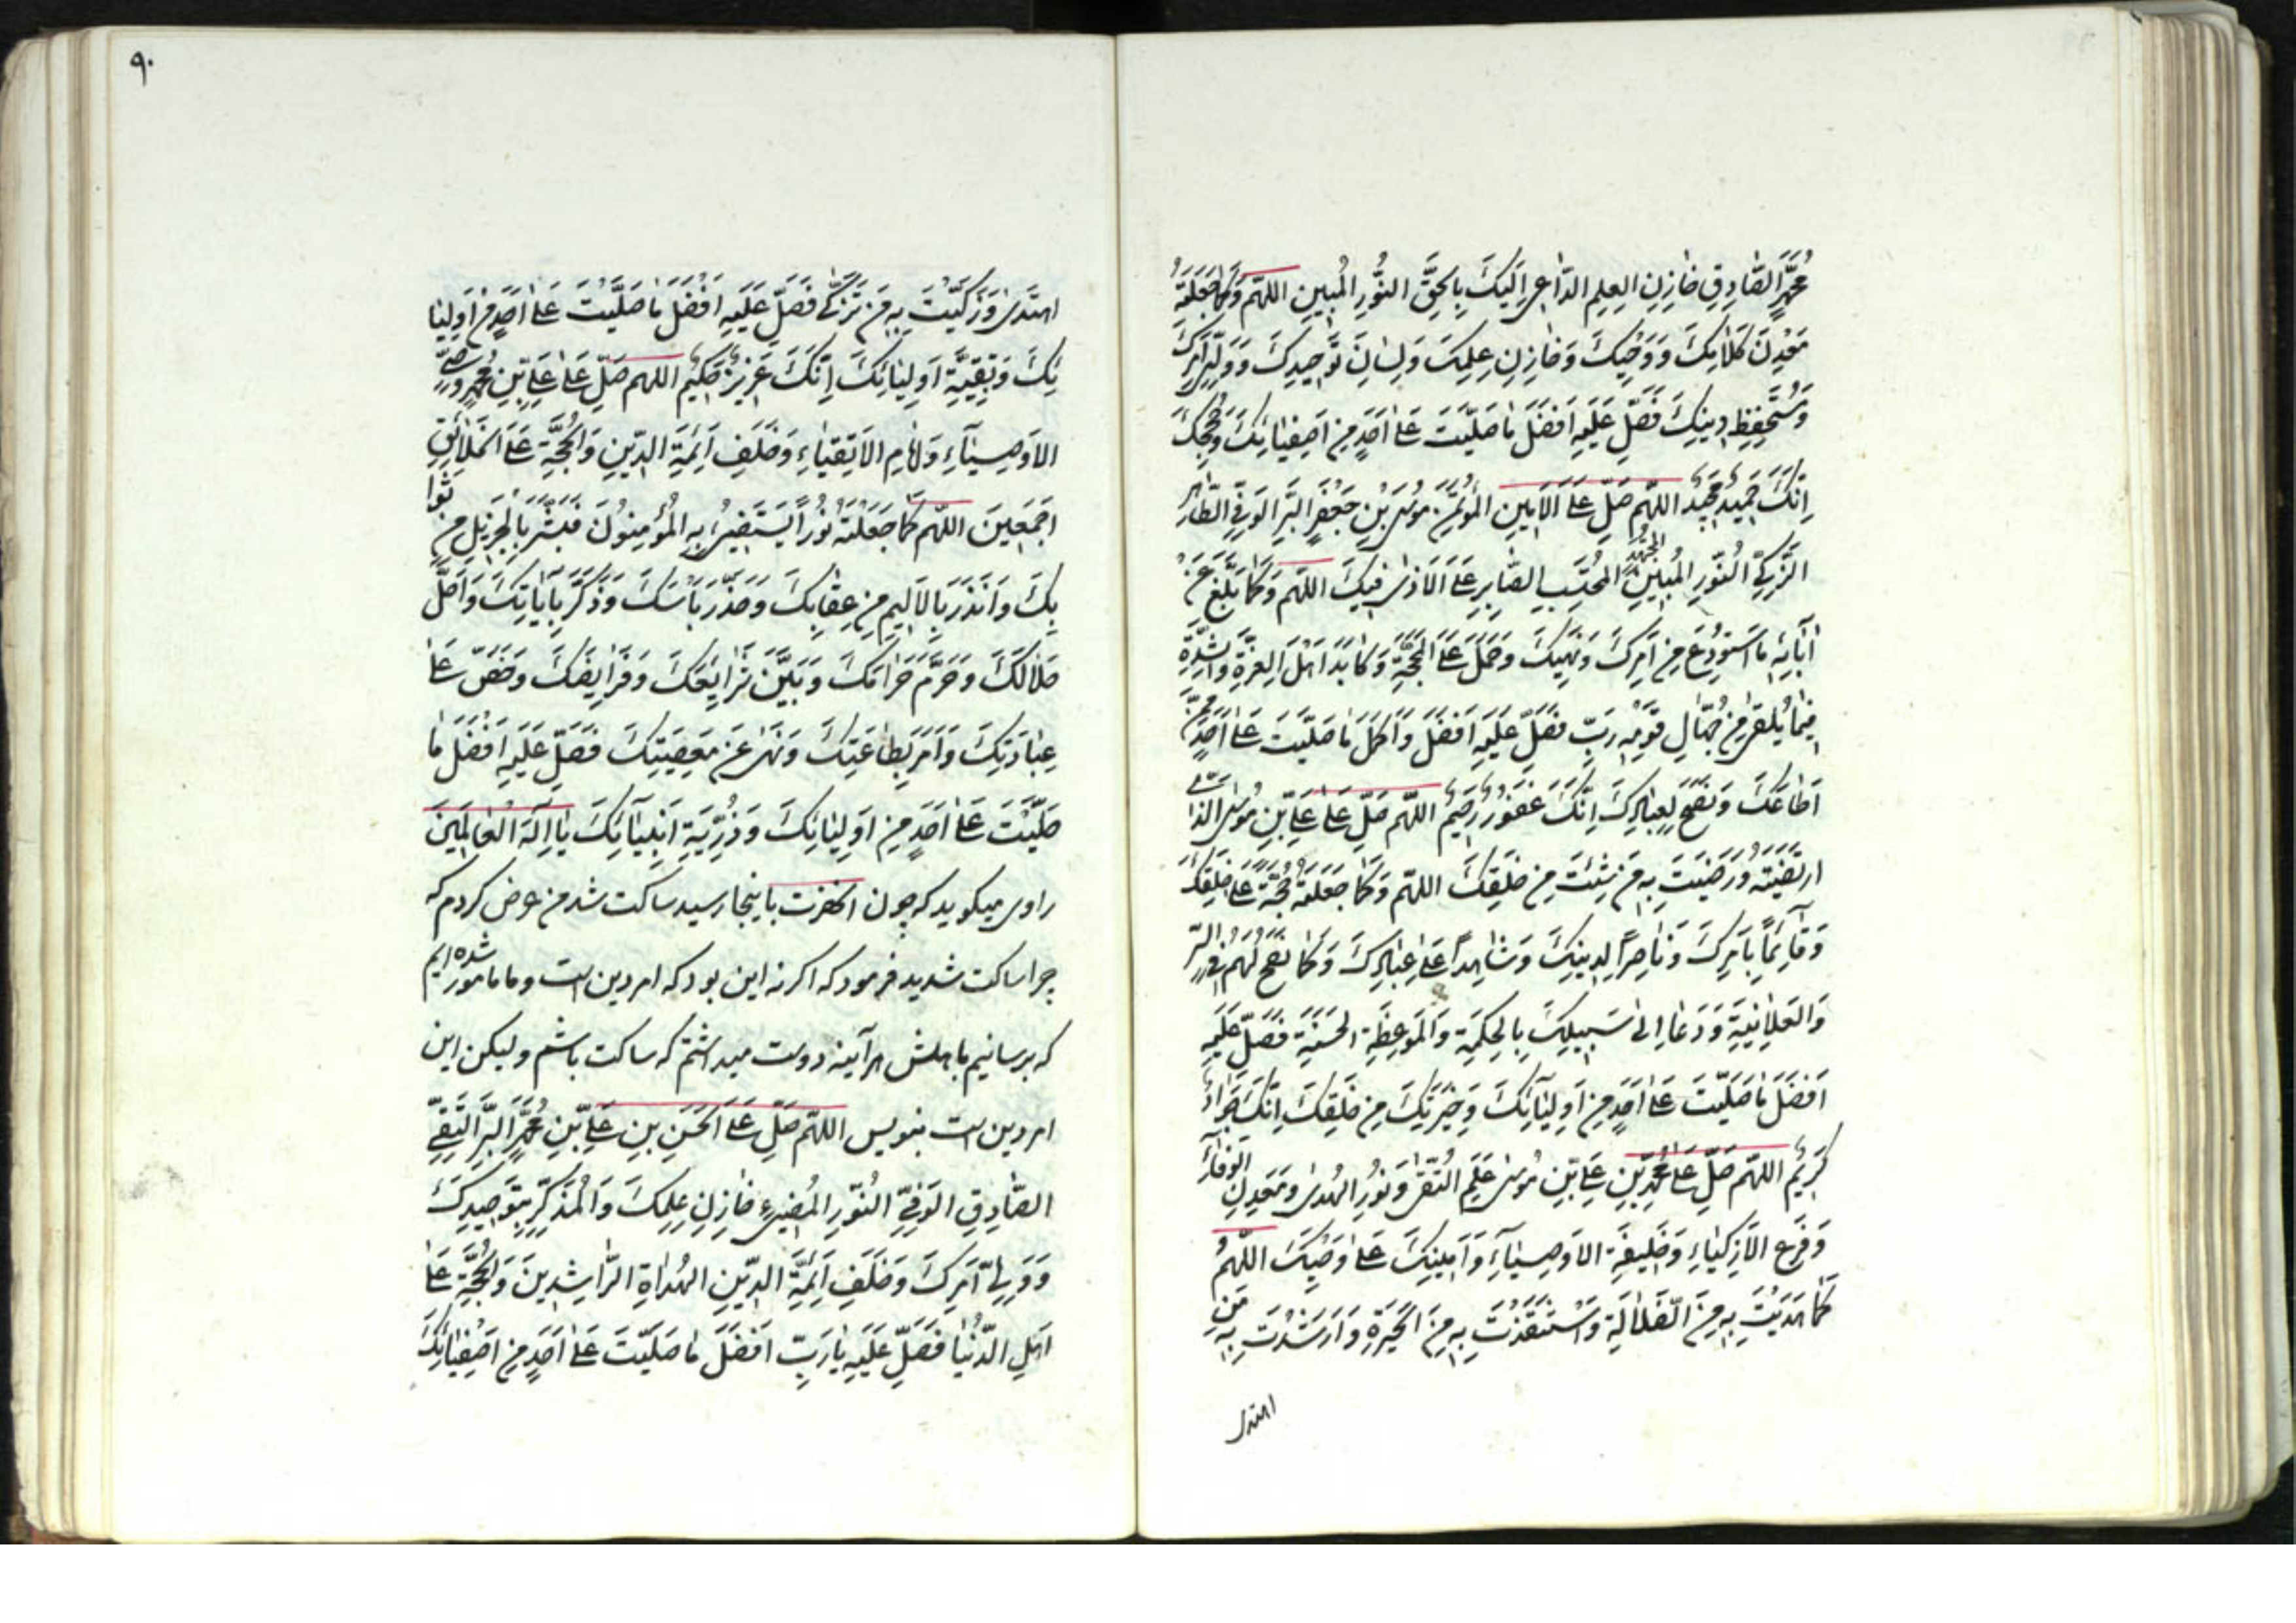 مُحَمَّدٍ الصَّادِقِ خَازِنِ العِلمِ الدَّاعِى اِلَيكَ بِالحَقِّ النُّورِ المُبِينِ اللهُمَّ وَ كَمَا جَعَلتَهُ
مَعدِنَ كَلَامِكَ وَ وَحيِكَ وَ خَازِنِ عِلمِكَ وَ لِسَانَ تَوحِيدِكَ وَ وَلِىَّ اَمرِكَ
وَ مُستَحفِظِ دِينِكَ فَصَلِّ عَلَيهِ اَفضَلَ مَا صَلَّيتَ عَلَى اَحَدٍ مِن اَصفِيَائِكَ وَ حُجَجِكَ
اِنَّكَ حَمِيدٌ مَجِيدٌ اللهُمَّ صَلِّ عَلَى الاَمِينِ المُؤتَمَنِ مُوسَى بْنِ جَعفَرٍ البَرِّ الوَفِىِّ الطَّاهِرِ
الزَّكِىِّ النُّورِ المُبِينِ المُجتَهِدِ المُحتَسِبِ الصَّابِرِ عَلَى الاَذَى فِيكَ اللهُمَّ وَ كَمَا بَلَّغَ عَن
اٰبَائِهِ مَا استُودِعَ مِن اَمرِكَ وَ نَهيِكَ وَ حَمَلَ عَلَى المَحَجَّةِ وَ كَابَدَ اَهلَ العِزَّةِ وَ الشِّدَّةِ
فِيمَا يَلقَى مِن جُهَّالِ قَومِهِ رَبِّ فَصَلِّ عَلَيهِ اَفضَلَ وَ اَكمَلَ مَا صَلَّيتَ عَلَى اَحَدٍ مِمَّن
اَطَاعَكَ وَ نَصَحَ لِعِبَادِكَ اِنَّكَ غَفُورٌ رَحِيمٌ اللهُمَّ صَلِّ عَلَى عَلِىِّ بْنِ مُوسَى الَّذِى
ارتَضَيتَهُ وَ رَضِيتَ بِهِ مَن شِئتَ مِن خَلقِكَ اللهُمَّ وَ كَمَا جَعَلتَهُ حُجَّةً عَلَى خَلقِكَ
وَ قَائِمًا بِاَمرِكَ وَ نَاصِرًا لِدِينِكَ وَ شَاهِدًا عَلَى عِبَادِكَ وَ كَمَا نَصَحَ لَهُم فِى السِّرِّ
وَ العَلَانِيَةِ وَ دَعَا اِلَى سَبِيلِكَ بِالحِكمَةِ وَ المَوعِظَةِ الحَسَنَةِ فَصَلِّ عَلَيهِ
اَفضَلَ مَا صَلَّيتَ عَلَى اَحَدٍ مِن اَولِيَائِكَ وَ خِيَرَتِكَ مِن خَلقِكَ اِنَّكَ جَوَادٌ
كَرِيمٌ اللهُمَّ صَلِّ عَلَى مُحَمَّدِ بْنِ عَلِىِّ بْنِ مُوسَى عَلَمِ التُّقَى وَ نُورِ الهُدَى وَ مَعدِنِ الوَفَاءِ
وَ فَرعِ الاَزكِيَاءِ وَ خَلِيفَةِ الاَوصِيَاءِ وَ اَمِينِكَ عَلَى وَحيِكَ اللهُمَّ
كَمَا هَدَيتَ بِهِ مِنَ الضَّلَالَةِ وَ استَنقَذتَ بِهِ مِنَ الحَيرَةِ وَ اَرشَدتَ بِهِ مَنِ
اهتدى
٩٠
اهتَدَى وَ زَكَّيتَ بِهِ مَن تَزَكَّى فَصَلِّ عَلَيهِ اَفضَلَ مَا صَلَّيتَ عَلَى اَحَدٍ مِن اَولِيَا
ئِكَ وَ بَقِيَّةِ اَولِيَائِكَ اِنَّكَ عَزِيزٌ حَكِيمٌ اللهُمَّ صَلِّ عَلَى عَلِىِّ بْنِ مُحَمَّدٍ وَصِىِّ
الاَوصِيَاءِ وَ اِمَامِ الاَتقِيَاءِ وَ خَلَفِ اَئِمَّةِ الدِّينِ وَ الحُجَّةِ عَلَى الخَلَائِقِ
اَجمَعِينَ اللهُمَّ كَمَا جَعَلتَهُ نُورًا يَستَضِىءُ بِهِ المُؤمِنُونَ فَبَشَّرَ بِالجَزِيلِ مِن ثَوا
بِكَ وَ اَنذَرَ بِالاَلِيمِ مِن عِقَابِكَ وَ حَذَّرَ بَاسَكَ وَ ذَكَّرَ بِاٰيَاتِكَ وَ اَحَلَّ
حَلَالَكَ وَ حَرَّمَ حَرَامَكَ وَ بَيَّنَ شَرَايِعَكَ وَ فَرَايِضَكَ وَ حَضَّ عَلَى
عِبَادَتِكَ وَ اَمَرَ بِطَاعَتِكَ وَ نَهَى عَن مَعصِيَتِكَ فَصَلِّ عَلَيهِ اَفضَلَ مَا
صَلَّيتَ عَلَى اَحَدٍ مِن اَولِيَائِكَ وَ ذُرِّيَّةِ اَنبِيَائِكَ يَا اِلٰهَ العَالَمِينَ
راوى ميكويد كه چون انحضرت باينجا رسيد ساكت شد من عرض كردم كه
چرا ساكت شديد فرمود كه اكر نه اين بود كه امر دين است و ما مامور شده ايم
كه برسانيم باهلش هر آينه دوست ميداشتم كه ساكت باشم و ليكن اين
امر دين است بنويس اللهُمَّ صَلِّ عَلَى الحَسَنِ بنِ عَلِىِّ بْنِ مُحَمَّدٍ البَرِّ التَّقِىِّ
الصَّادِقِ الوَفِىِّ النُّورِ المُضِىءِ خَازِنِ عِلمِكَ وَ المُذَكِّرِ بِتَوحِيدِكَ
وَ وَلِىِّ اَمرِكَ وَ خَلَفِ اَئِمَّةِ الدِّينِ الهُدَاةِ الرَّاشِدِينَ وَ الحُجَّةِ عَلَى
اَهلِ الدُّنيَا فَصَلِّ عَلَيهِ يَا رَبِّ اَفضَلَ مَا صَلَّيتَ عَلَى اَحَدٍ مِن اَصفِيَائِكَ